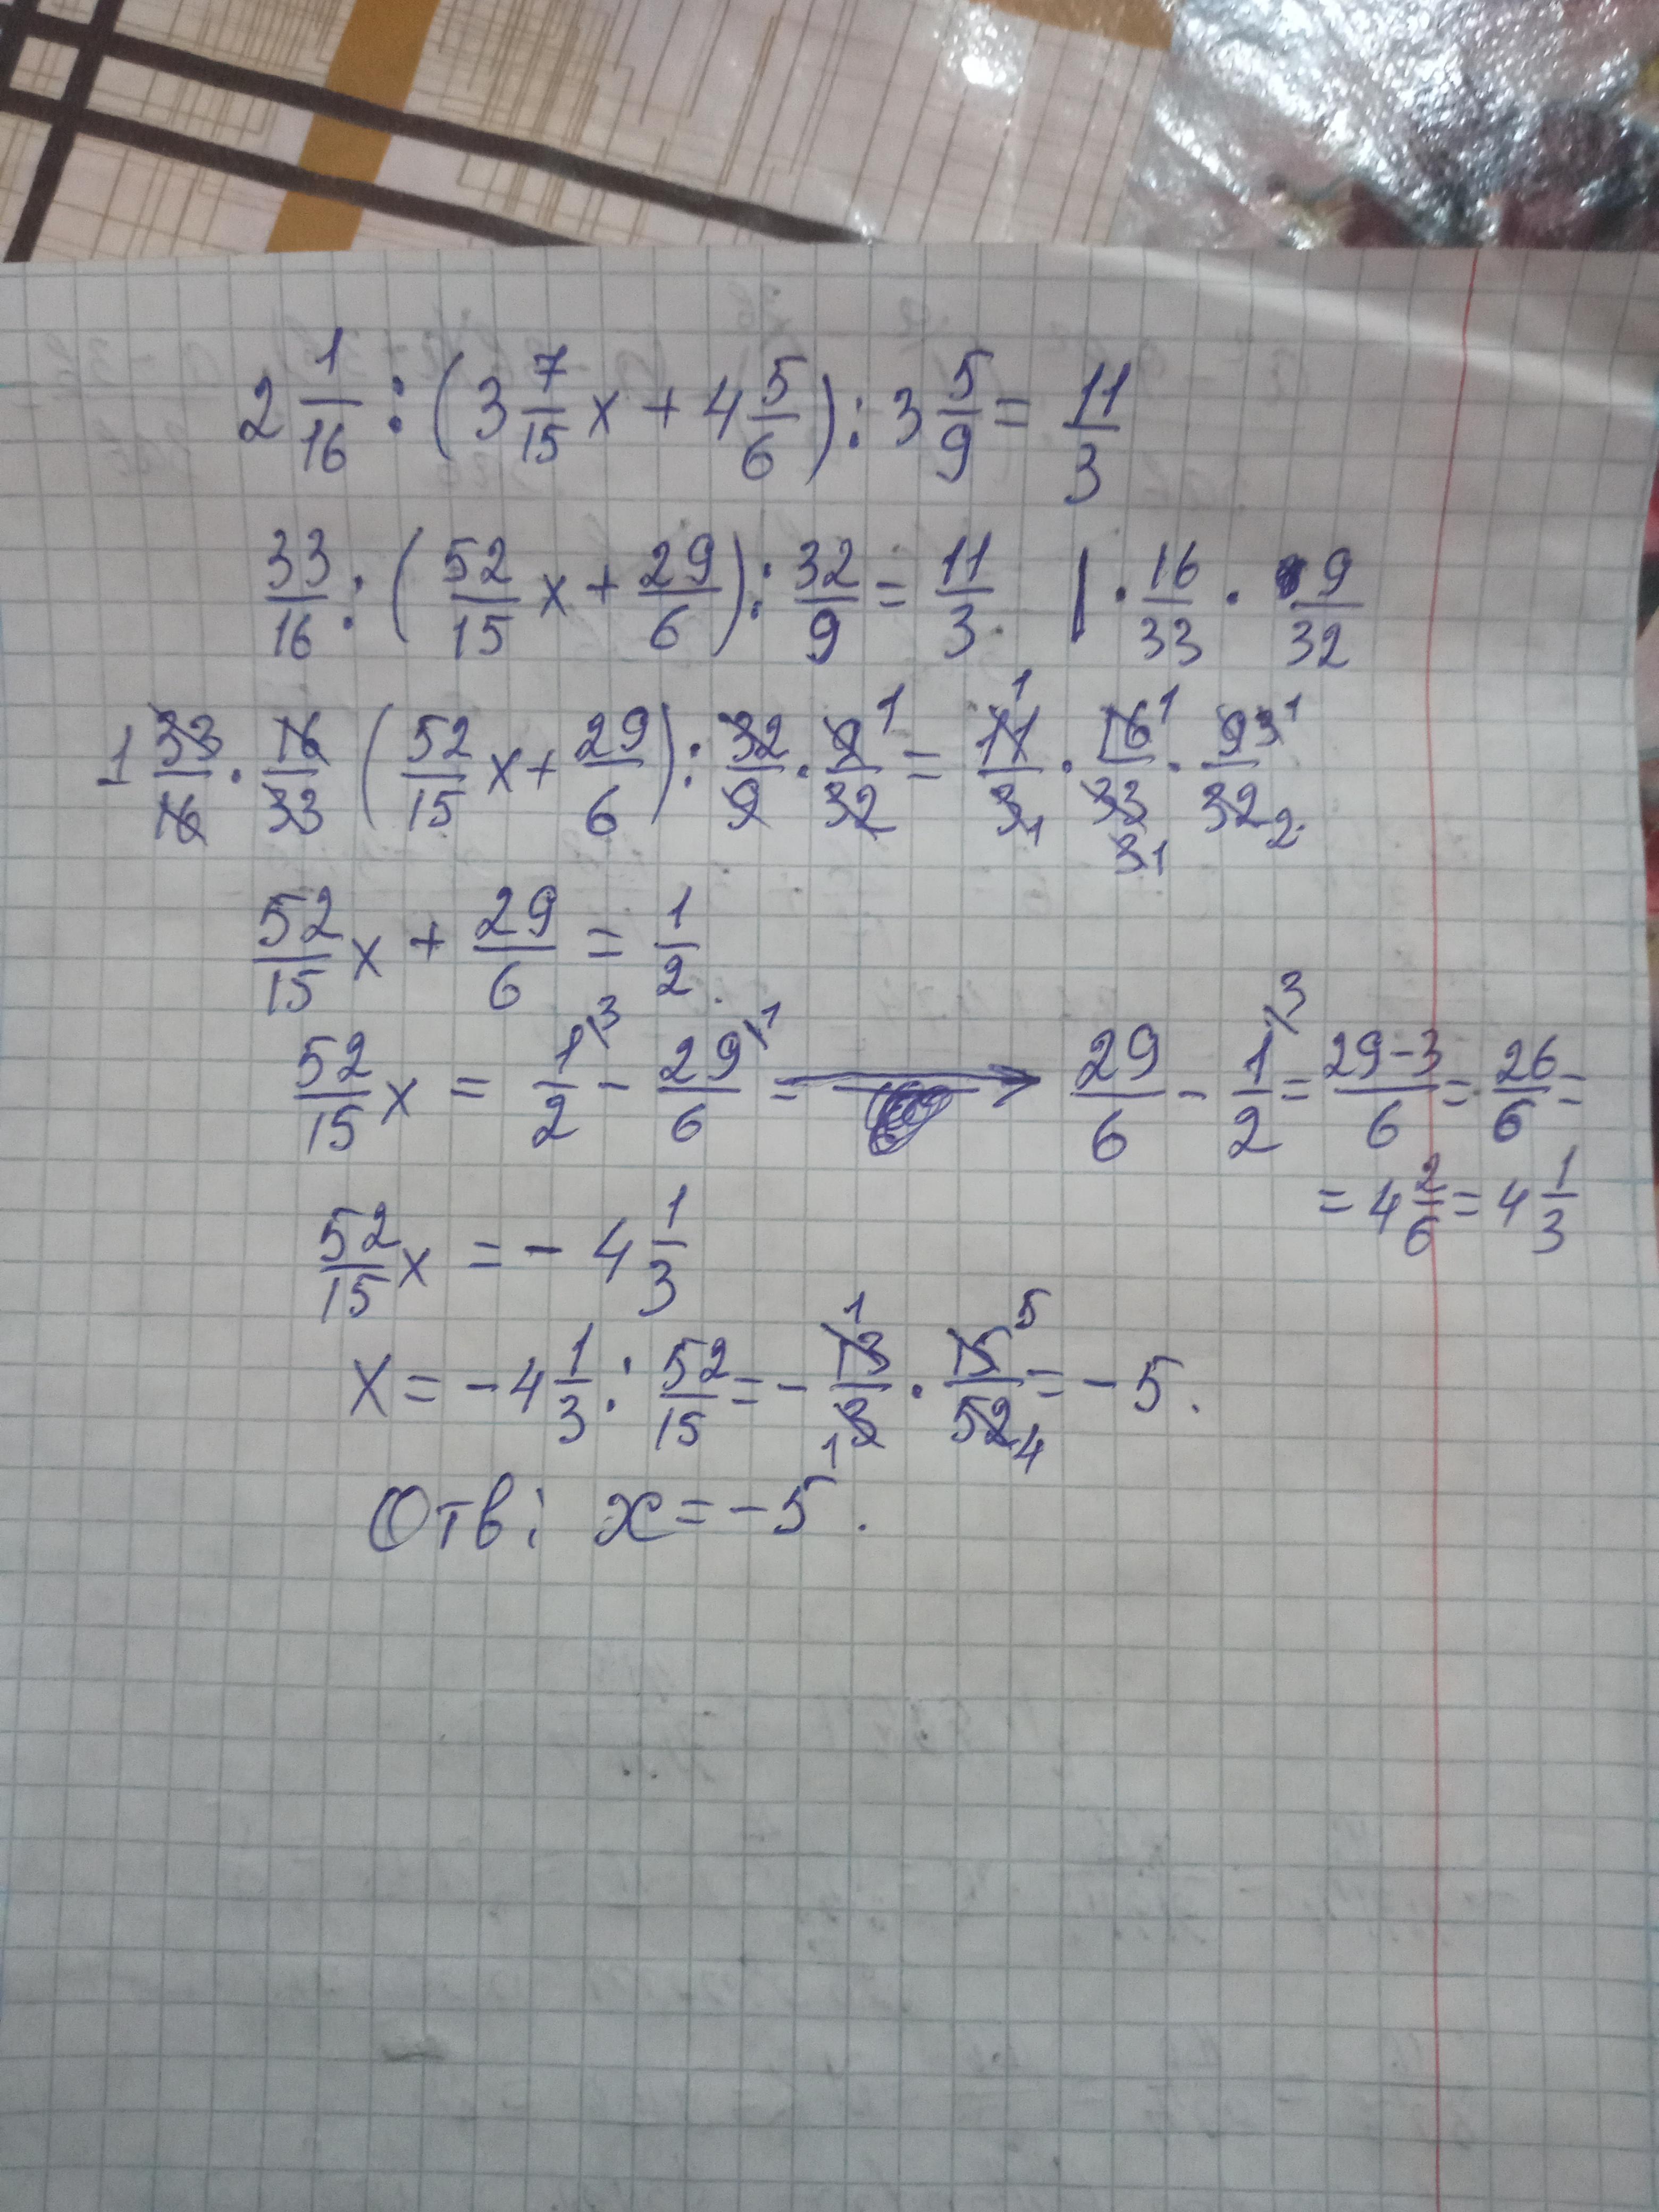 2 1/16 : (3 7/15 x + 4 5/6) : 3 5/9 = 11/3
33/16 : (52/15 x + 29/6) : 32/9 = 11/3 | · 16/33 · 9/32
1 33/16 · 16/33 (52/15 x + 29/6) : 32/9 · 9/32 1 = 11/3 1 1 · 16/33 1 3 1 · 9/32 3 1 2
52/15 x + 29/6 = 1/2
52/15 x = 1/2 \3 - 29/6 \1 = → 29/6 - 1/2 \3 = 29-3/6 = 26/6 =
= 4 2/6 = 4 1/3
52/15 x = - 4 1/3
x = - 4 1/3 : 52/15 = - 13/3 1 1 · 15/52 5 4 = - 5.
Отв: x = - 5.